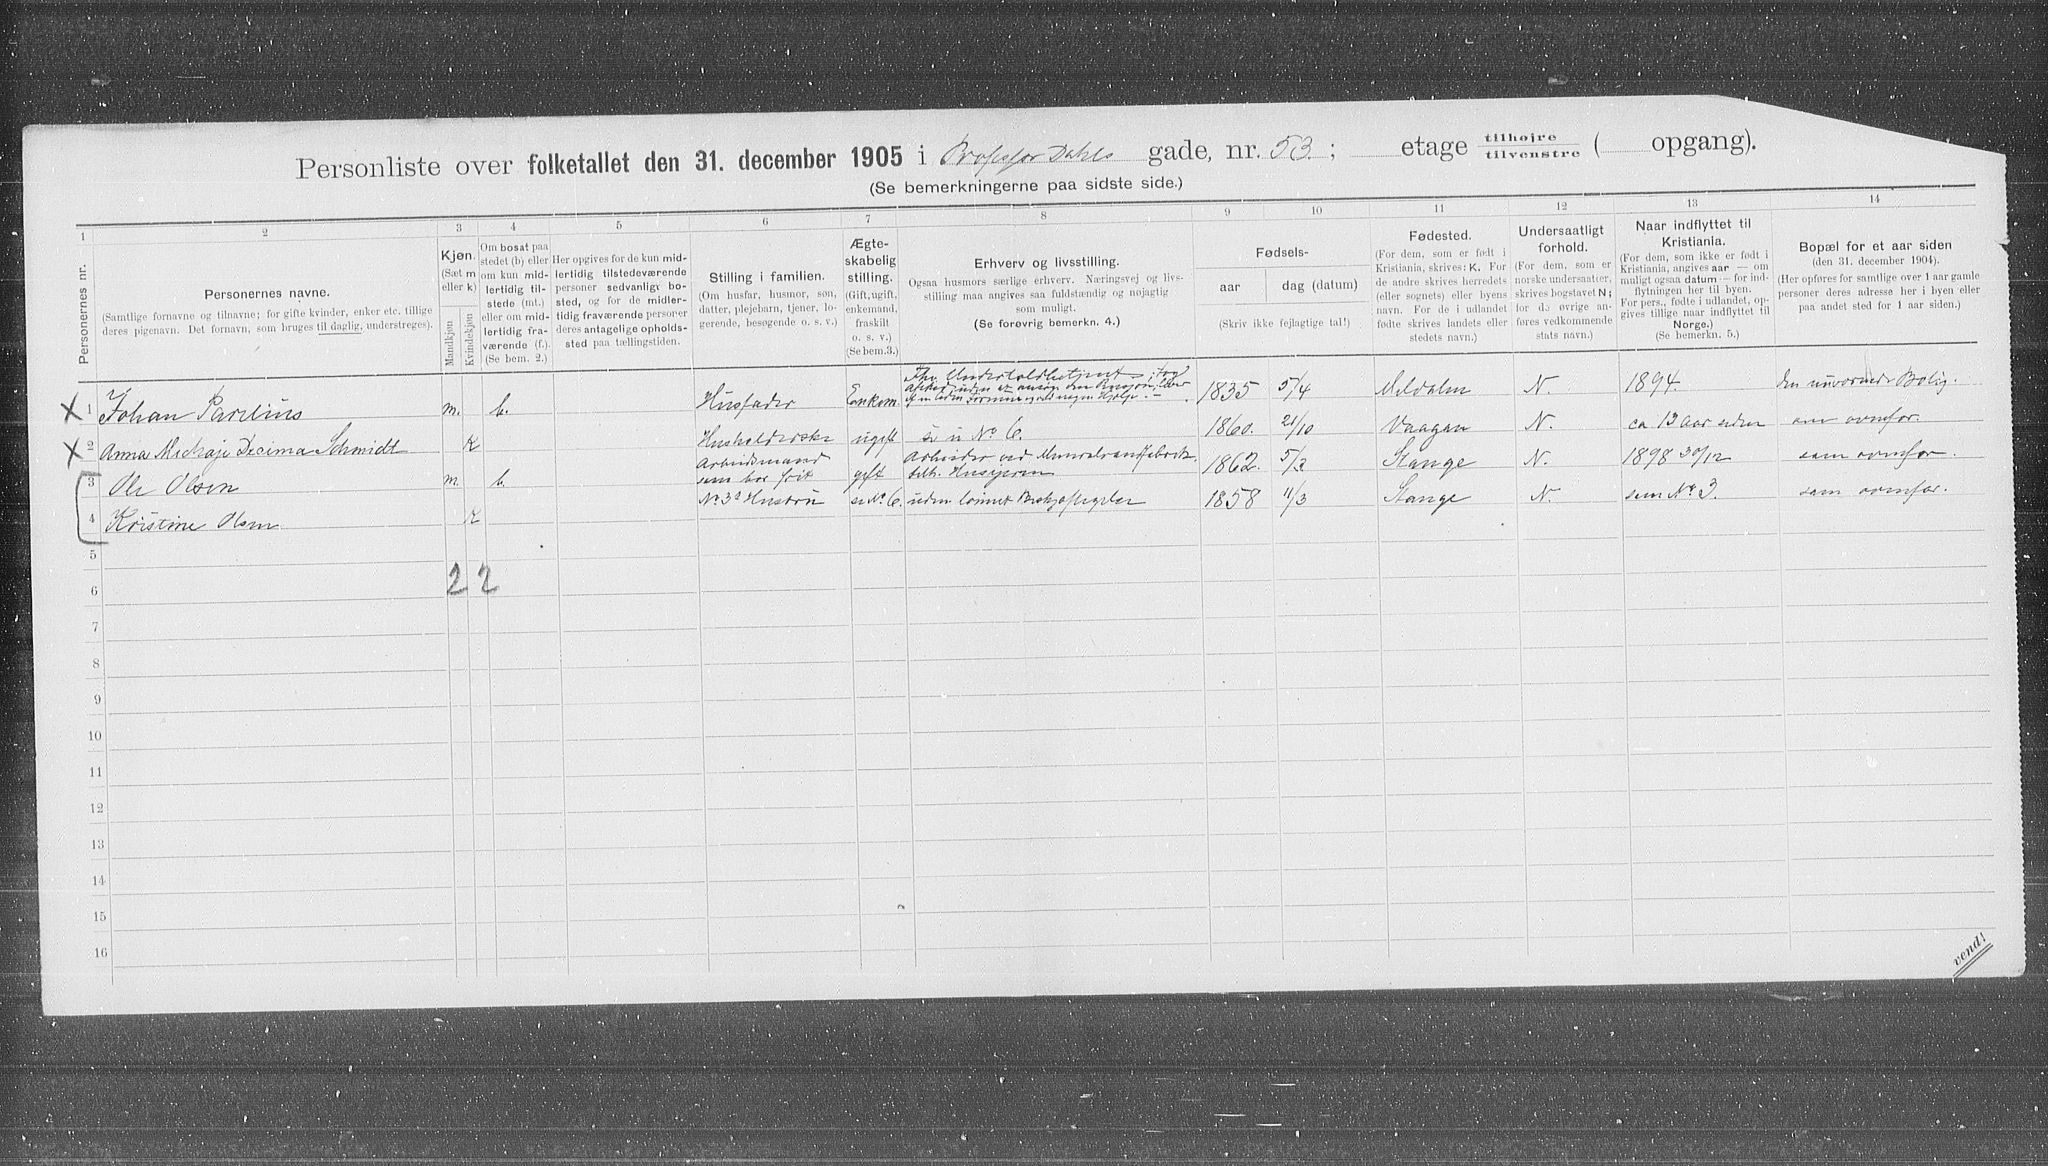 Personliste over folketallet den 31. december 1905 i Professor Dahls gade, nr. 53. ; etage tilhøjre / tilvenstre ( opgang).
(Se bemerkningerne paa sidste side.)
1 2 3 4 5 6 7 8 9 10 11 12 13 14
Personernes nr.
Personernes navne.
(Samtlige fornavne og tilnavne; for gifte kvinder, enker etc. tillige
deres pigenavn. Det fornavn, som bruges til daglig, understreges).
Kjøn.
(Sæt m
eller k)
Mandkjøn
Kvindekjøn
Om bosat paa
stedet (b) eller
om kun mid-
lertidig til-
stede (mt.)
eller om mid-
lertidig fra-
værende (f.).
(Se bem. 2.)
Her opgives for de kun mid-
lertidig tilstedeværende
personer sedvanlig bo-
sted, og for de midler-
tidig fraværende personer
deres antagelige opholds-
sted paa tællingstiden.
Stilling i familien.
(Om husfar, husmor, søn,
datter, plejebarn, tjener, lo-
gerende, besøgende o. s. v.)
Ægte-
skabelig
stilling.
(Gift, ugift,
enkemand,
fraskilt
o. s. v.)
(Se bem. 3.)
Erhverv og livsstilling.
Ogsaa husmors særlige erhverv. Næringsvej og livs-
stilling maa angives saa fuldstændig og nøjagtig
som muligt.
(Se forøvrig bemerkn. 4.)
Fødsels-
aar dag (datum)
(Skriv ikke fejlagtige tal!)
Fødested.
(For dem, som er født i
Kristiania, skrives: K. For
de andre skrives herredets
(eller sognets) eller byens
navn. For de i udlandet
fødte skrives landets eller
stedets navn.)
Undersaatligt
forhold.
(For dem, som er
norske undersaatter,
skrives bogstavet N;
for de øvrige an-
føres vedkommende
stats navn.)
Naar indflyttet til
Kristiania.
(For dem, som ikke er født i
Kristiania, angives aar — om
muligt ogsaa datum — for ind-
flytningen her til byen.
For pers., fødte i udlandet, op-
gives tillige naar indflyttet til
Norge.)
(Se bemerkn. 5.)
Bopæl for et aar siden
(den 31. december 1904).
(Her opføres for samtlige over 1 aar gamle
personer deres adresse her i byen eller
paa andet sted for 1 aar siden.)
X 1 Johan Parelius m. b. Husfader Enkem. 1835 5/4 Meldalen N. 1894 den nuværende Bolig.
X 2 Anna Schmidt K Husholderske ugift se u No 6. 1860. 21/10 Vaagan N. ca 13 Aar siden som ovenfor.
3 Ole Olsen m. b. Arbeidsmand som bor frit gift Arbeider ved 1862. 5/3 Stange N. 1898 30/12 som ovenfor.
4 Kristine Olsen K No 3s Hustru uden lønnet 1858 11/3 Stange N. som No 3. som ovenfor.
5
6 2 2
7
8
9
10
11
12
13
14
15
16
vend!